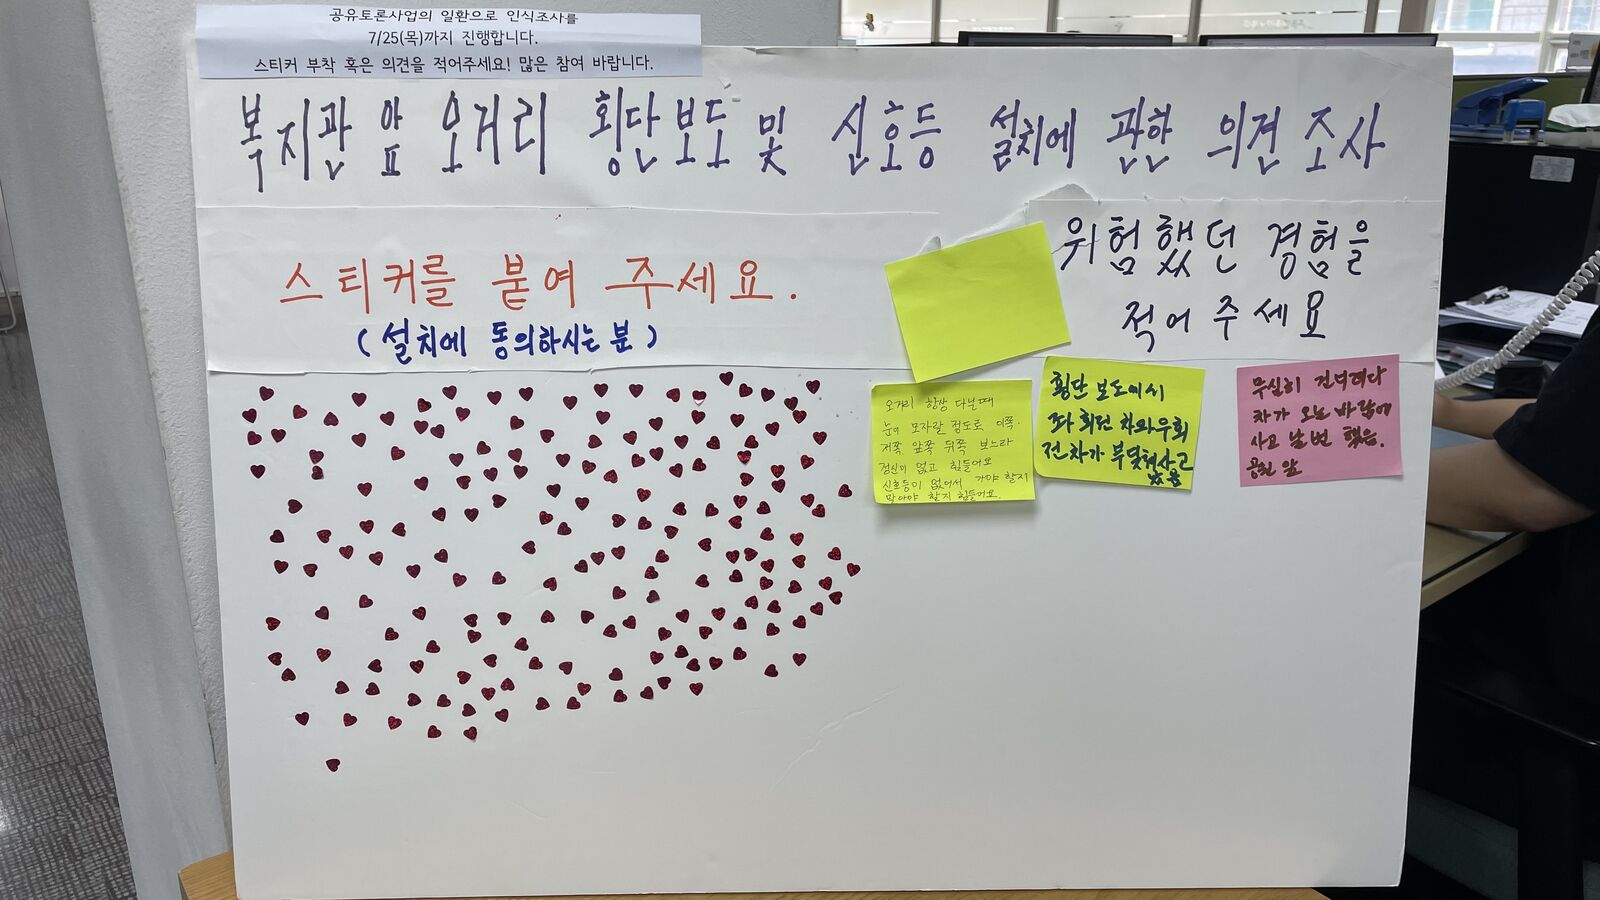 공유토론사업의 일환으로 인식조사를
7/25(목)까지 진행합니다.
스티커 부착 혹은 의견을 적어주세요! 많은 참여 바랍니다.
복지관 앞 오거리 횡단보도 및 신호등 설치에 관한 의견 조사
스티커를 붙여 주세요.
(설치에 동의하시는 분)
위험했던 경험을
적어 주세요
오거리 항상 다닐때
눈이 모자랄 정도로 이쪽.
저쪽 앞쪽 뒤쪽 보느라
정신이 없고 힘들어요
신호등이 없어서 가야 할지
말아야 할지 힘들어요.
횡단 보도에서
좌회전 차와 우회
전 차가 부딪쳐 사고
있음
무심히 건너려다
차가 오는 바람에
사고 날 번 했음.
공원 앞